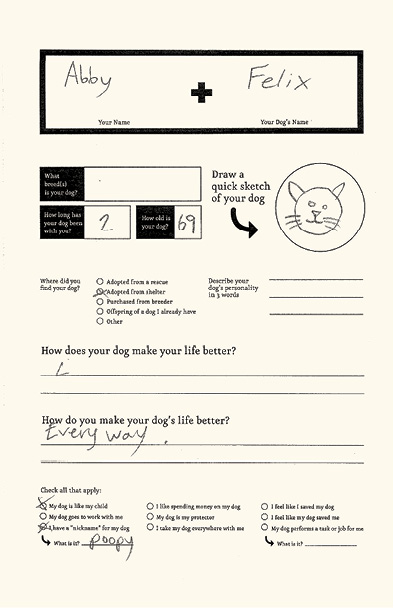 Abby + Felix
Your Name Your Dog's Name
What breed(s) is your dog?
How long has your dog been with you? 2 How old is your dog? 69
Draw a quick sketch of your dog
Where did you find your dog?
Adopted from a rescue
Adopted from shelter
Purchased from breeder
Offspring of a dog I already have
Other
Describe your dog's personality in 3 words
How does your dog make your life better?
L
How do you make your dog's life better?
Every way.
Check all that apply:
My dog is like my child
My dog goes to work with me
I have a "nickname" for my dog
What is it? Poopy
I like spending money on my dog
My dog is my protector
I take my dog everywhere with me
I feel like I saved my dog
I feel like my dog saved me
My dog performs a task or job for me
What is it?